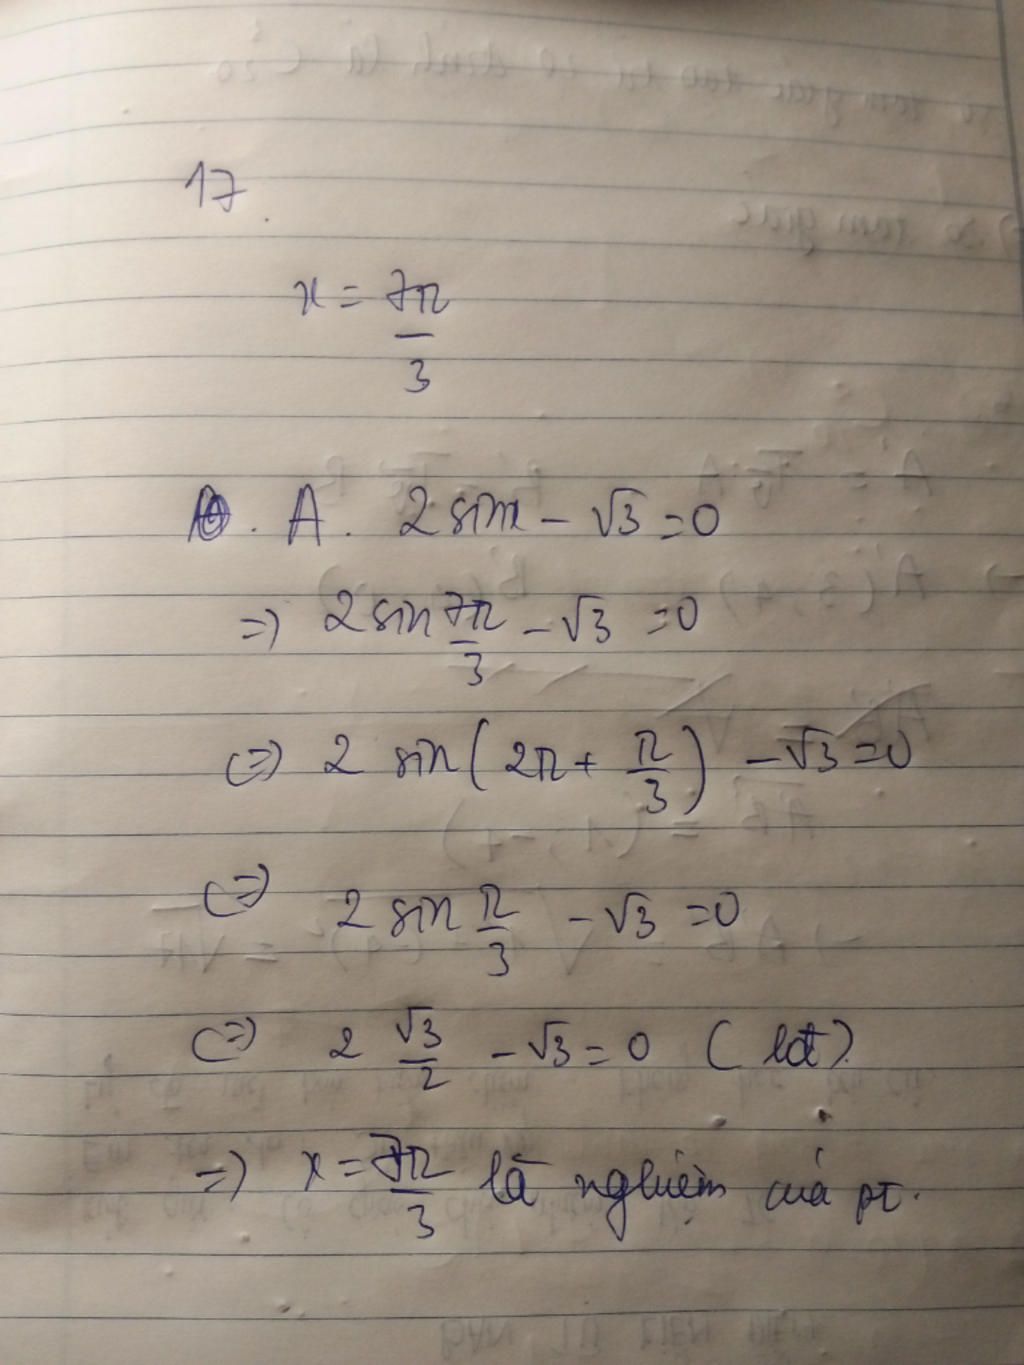 17.
x = 7π/3
A. 2 sin x - √3 = 0
=> 2 sin 7π/3 - √3 = 0
<=> 2 sin(2π + π/3) - √3 = 0
<=> 2 sin π/3 - √3 = 0
<=> 2 √3/2 - √3 = 0
=> x = 7π/3 là nghiệm của pt.